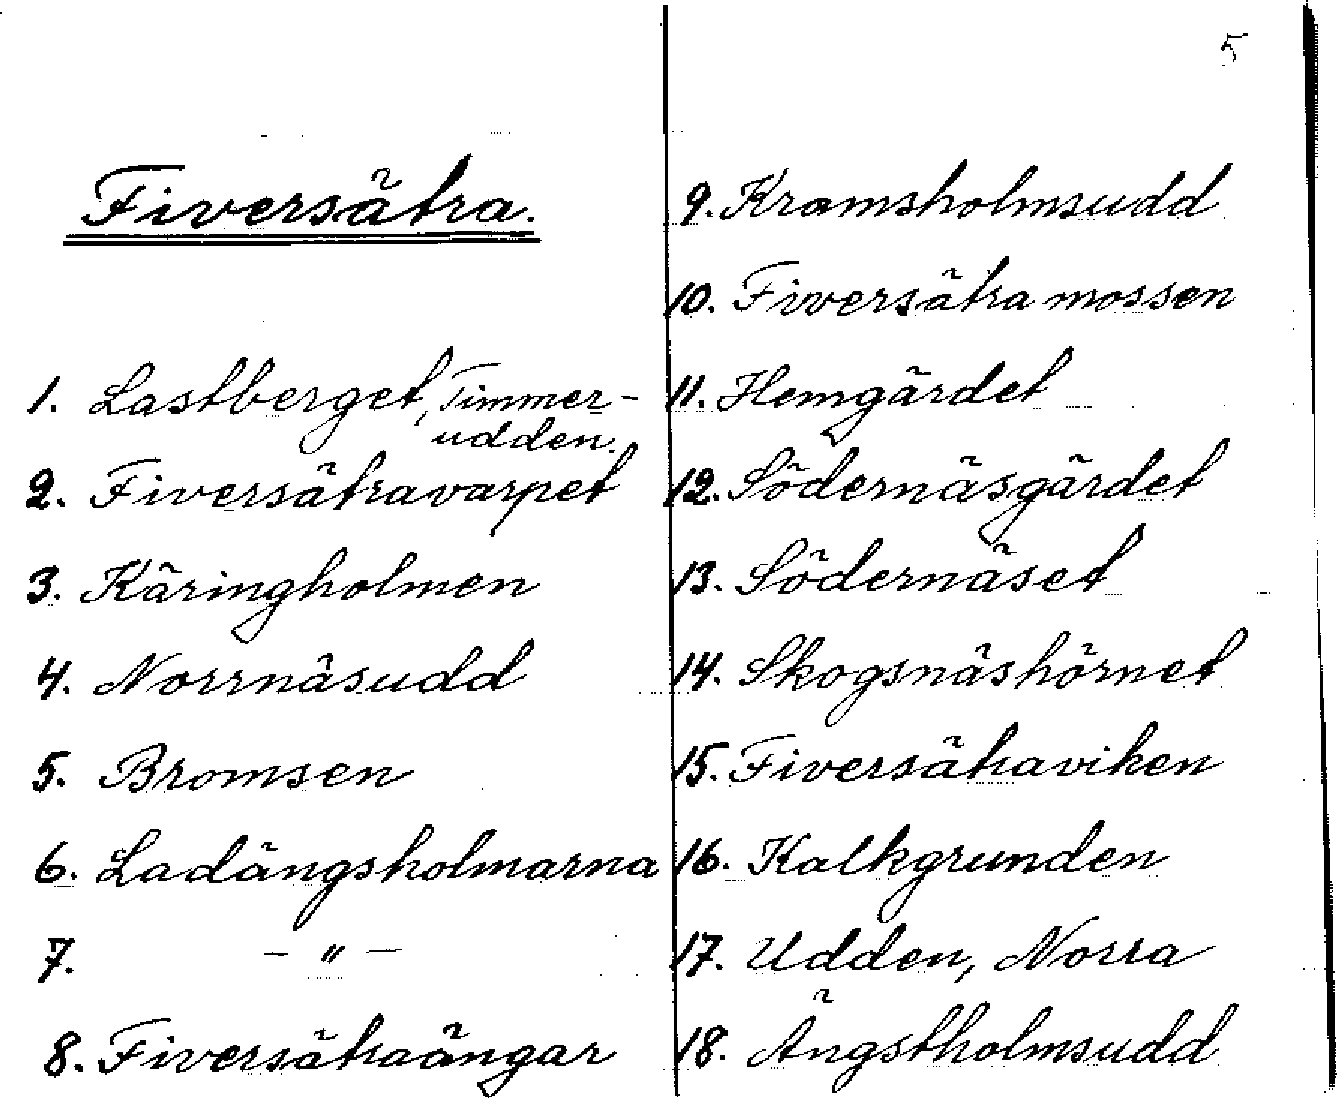 5
Fiversätra.
1. Lastberget, Timmer-
udden.
2. Fiversätravarpet
3. Käringholmen
4. Norrnäsudd
5. Bromsen
6. Ladängsholmarna
7. - " -
8. Fiversätraängar
9. Kramsholmsudd
10. Fiversätra mossen
11. Hemgärdet
12. Södernäsgärdet
13. Södernäset
14. Skogsnäshörnet
15. Fiversätraviken
16. Kalkgrunden
17. Udden, Norra
18. Ängsholmsudd